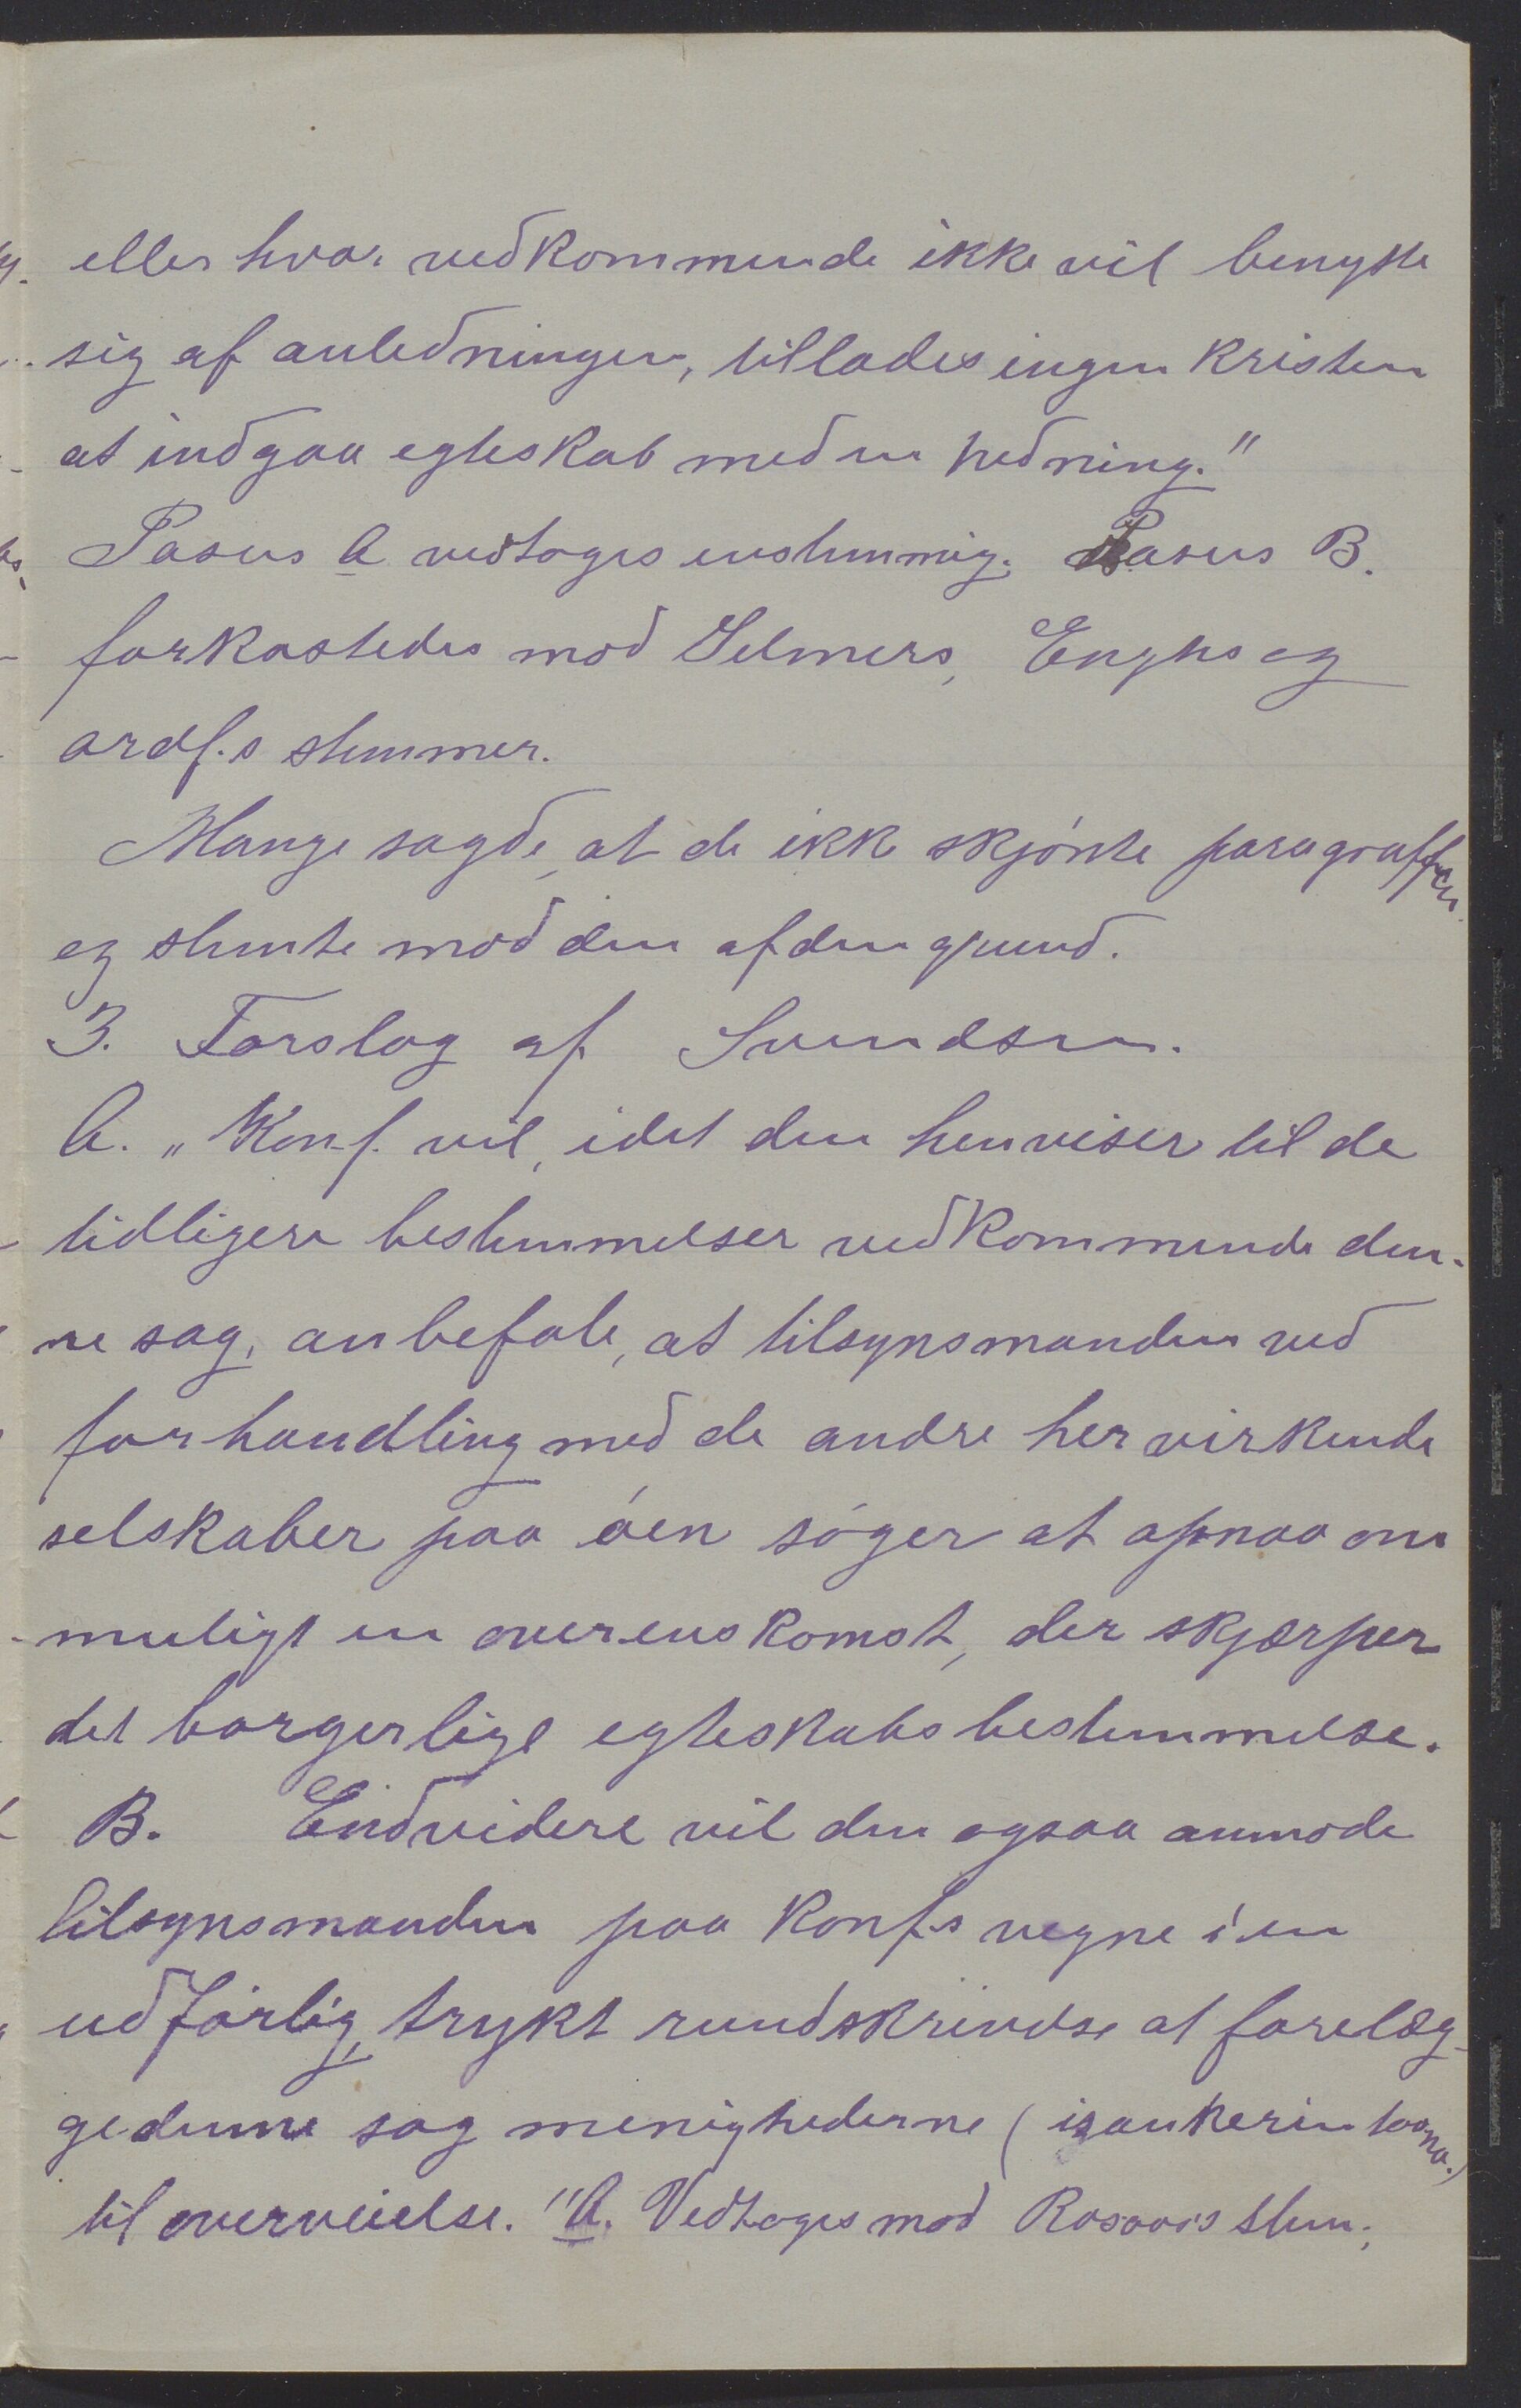 eller hvor vedkommende ikke vil benytte
sig af anledningen, tillades ingen kristen
at indgaa egteskab med en hedning."
Pasus A vedtoges enstemmig. Pasus B.
forkastedes mod Selmers, Enghs og
ordf.s stemmer.
Mange sagde, at de ikke skjönte paragraffen
og stemte mod den af den grund.
3. Forslag af Svendsen.
A. „Konf. vil, idet den henviser til de
tidligere bestemmelser vedkommende den-
ne sag, anbefale, at tilsynsmanden ved
forhandling med de andre her virkende
selskaber paa öen söger at opnaa om
muligt en overenskomst, der skjærper
det borgerlige egteskabs bestemmelse.
B. Endvidere vil den ogsaa anmode
tilsynsmanden paa Konf.s vegne i en
udförlig, trykt rundskrivelse at forelæg-
ge denne sag menighederne (isankerintaona.)
til overveielse." A. Vedtoges mod Rosaas's stem;